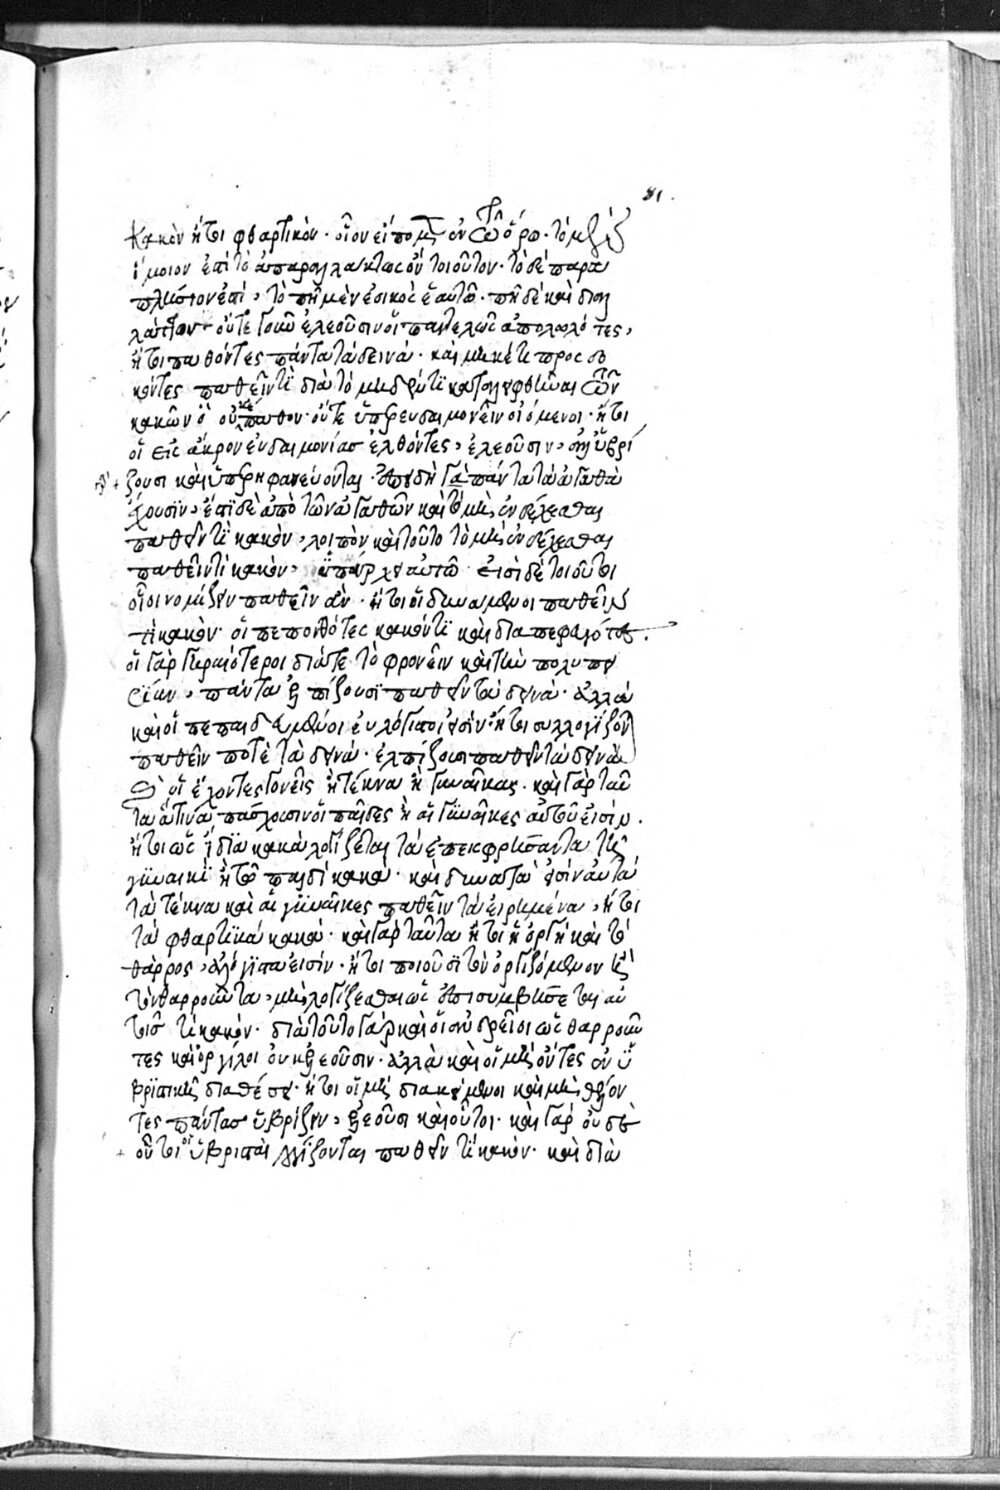 81.
κακὸν ἤτοι φθαρτικὸν· οἷον εἴπομεν ἐν τῶ ὅρω· τὸ μὲν γὰρ
ὅμοιον ἐπὶ τὸ ἀπαραλλάκτως ὂν τοιοῦτον· τὸ δὲ παρα
πλήσιον ἐπὶ, τὸ πῆ μὲν ἐοικὸς ἑαυτῶ· πῆ δὲ καὶ διαλ
λάττον· οὔτε γοῦν ἐλεοῦσιν οἱ παντελῶς ἀπολωλότες,
ἤτοι παθόντες πάντα τὰ δεινά· καὶ μηκέτι προσδο
κῶντες παθεῖν τὶ διὰ τὸ μηδὲν ἔτι καταλειφθῆναι τῶν
κακῶν ὃ οὐκ ἔπαθον· οὔτε ὑπερευδαιμονεῖν οἰόμενοι· ἤτοι
οἱ εἰς ἄκρον εὐδαιμονίας ἐλθόντες, ἐλεοῦσιν, ἀλλ' ὑβρί
ζουσι καὶ ὑπερηφανεύονται· ἐπειδὴ γὰρ πάντα τὰ ἀγαθὰ
ἔχουσιν, ἔστι δὲ ἀπὸ τῶν ἀγαθῶν καὶ τὸ μὴ ἐνδέχεσθαι
παθεῖν τὶ κακὸν, λοιπὸν καὶ τοῦτο τὸ μὴ ἐνδέχεσθαι
παθεῖν τὶ κακὸν, ὑπάρχει αὐτῶ· εἰσὶ δὲ τοιοῦτοι
οἷοι νομίζειν παθεῖν ἂν· ἤτοι οἱ δυνάμενοι παθεῖν
τὶ κακὸν· οἱ πεπονθότες κακόν τι καὶ διαπεφευγότες·
οἱ γὰρ γηραιότεροι διά τε τὸ φρονεῖν καὶ τὴν πολυπει
ρίαν, πάντα ἐλπίζουσι παθεῖν τὰ δεινά· ἀλλὰ
καὶ οἱ πεπαιδευμένοι εὐλόγιστοι εἰσίν· ἤτοι συλλογίζον
παθεῖν ποτὲ τὰ δεινά· ἐλπίζουσι παθεῖν τὰ δεινὰ
καὶ οἱ ἔχοντες γονεῖς ἢ τέκνα ἢ γυναῖκας· καὶ γὰρ ταῦ
τα ἅτινα πάσχουσιν οἱ παῖδες ἢ αἱ γυναῖκες αὐτοῦ εἰσίν.
ἤτοι ὡς ἴδια κακὰ λογίζεται τὰ ἐπεισφρήσαντα τῆ
γυναικὶ ἢ τῶ παιδὶ κακά· καὶ δυνατά εἰσιν αὐτὰ
τὰ τέκνα καὶ αἱ γυναῖκες παθεῖν τὰ εἰρημένα, ἤτοι
τὰ φθαρτικὰ κακά· καὶ γὰρ ταῦτα ἤτοι ἡ ὀργὴ καὶ τὸ
θάρρος, ἀλόγιστα εἰσίν· ἤτοι ποιοῦσι τὸν ὀργιζόμενον καὶ
τὸν θαρροῦντα, μὴ λογίζεσθαι ὡς ὅτι συμβήσεται αὐ
τοῖς τὶ κακὸν· διὰ τοῦτο γὰρ καὶ οἱ ἀνδρεῖοι ὡς θαρροῦν
τες καὶ ὀργίλοι οὐκ ἐλεοῦσιν· ἀλλὰ καὶ οἱ μὴ ὄντες ἐν ὑ
βριστικῆ διαθέσει· ἤτοι οἱ μὴ διακείμενοι καὶ μὴ θέλον
τες πάντας ὑβρίζειν, ἐλεοῦσι καὶ οὗτοι· καὶ γὰρ οὐδὲ
οὗτοι οἱ ὑβρισταὶ λογίζονται παθεῖν τὶ κακόν· καὶ διὰ